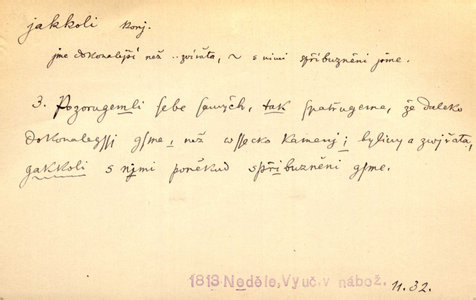 jakkoli konj.
jsme dokonalejší než ..zvířata, ~ s nimi spřibuzněni jsme.
3. Pozorugemli sebe samých, tak spatřugeme, že daleko
dokonalegssj gsme, než wssecko kamenj; byliny a zwjřata,
gakkoli s njmi poněkud spřibuzněni gsme.
1813 Neděle, Vyuč. v nábož. 11.32.